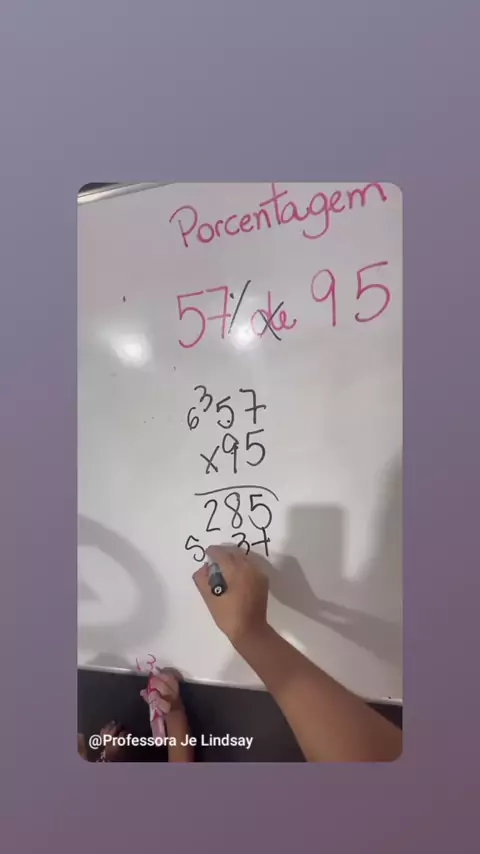 Porcentagem
57% de 95
6 3 57
x95
285
5 3 +
@Professora Je Lindsay